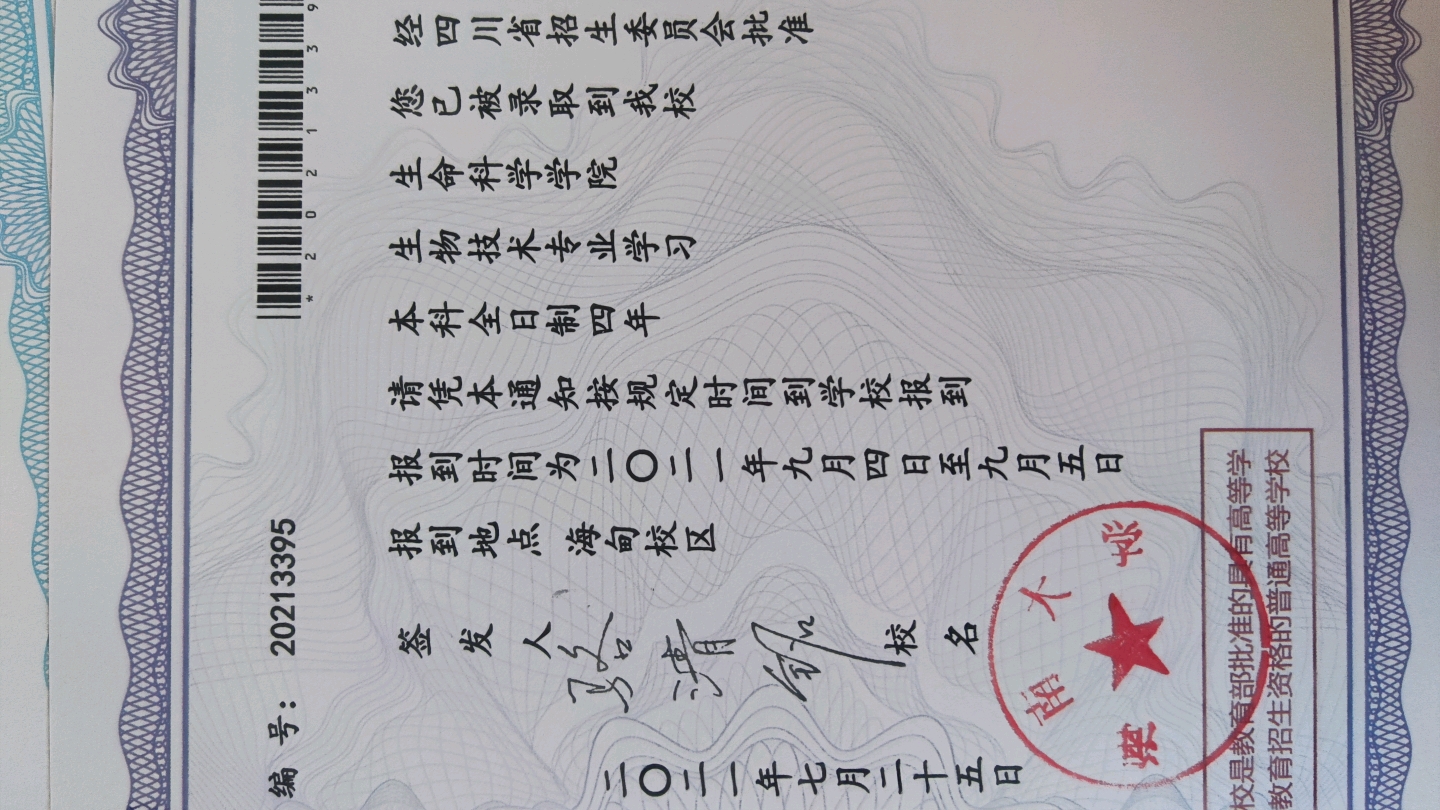 编号：20213395
*2021339
经四川省招生委员会批准
您已被录取到我校
生命科学学院
生物技术专业学习
本科全日制四年
请凭本通知按规定时间到学校报到
报到时间为二〇二一年九月四日至九月五日
报到地点 海甸校区
签发人 骆清铭 校名
二〇二一年七月二十五日
海南大学
校是教育部批准的具有高等学
教育招生资格的普通高等学校